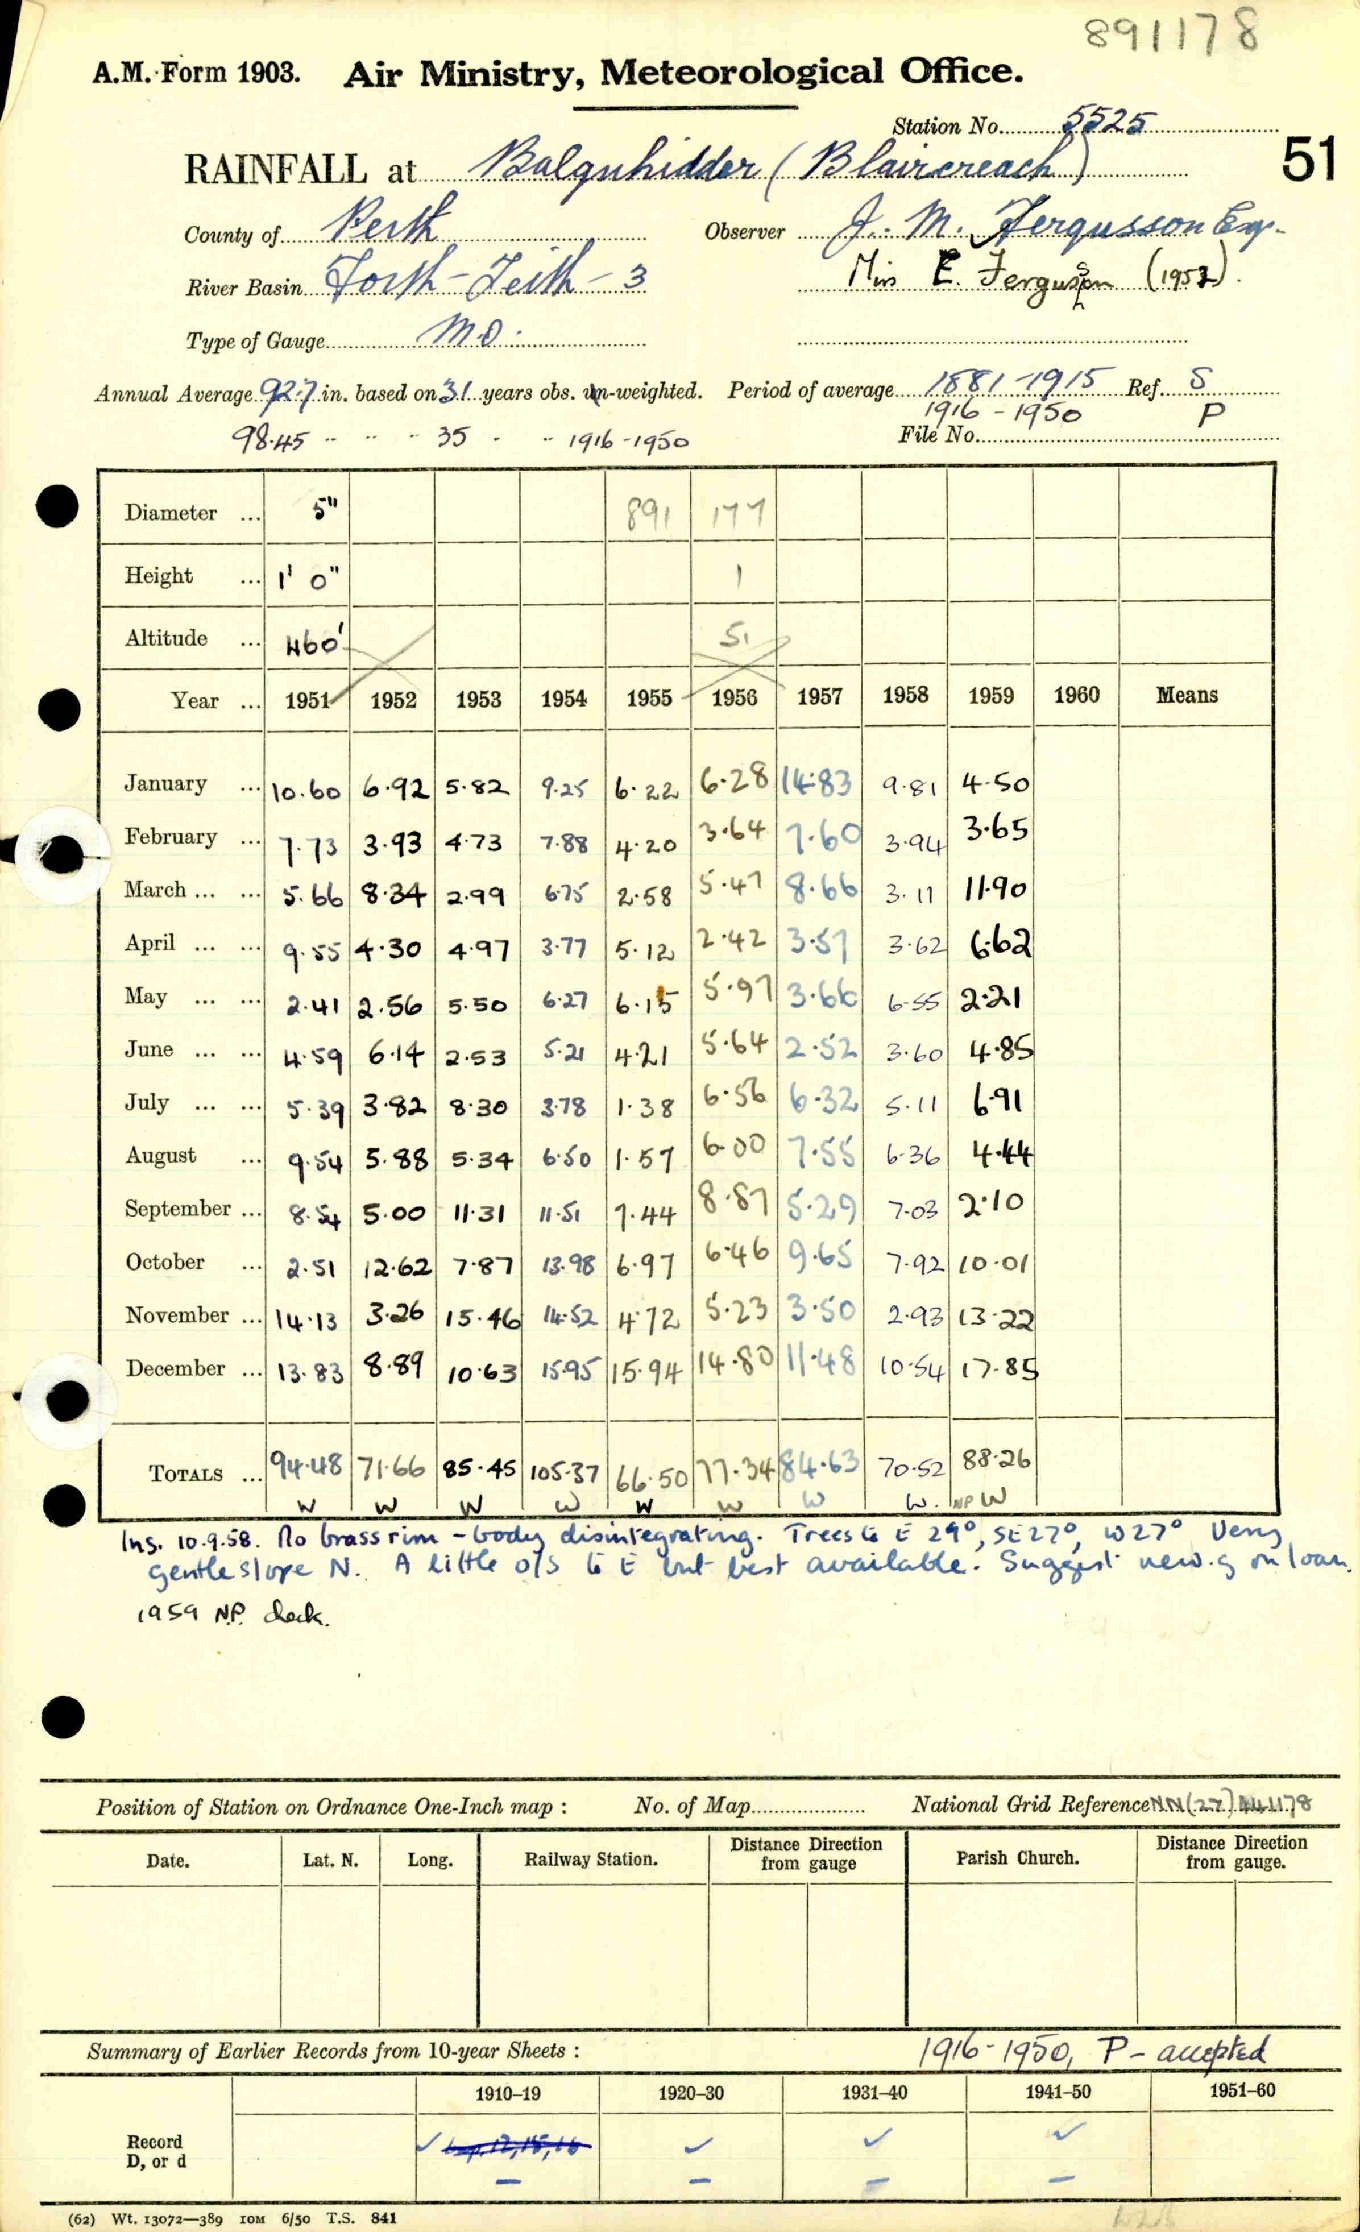 891178
A.M. Form 1903. Air Ministry, Meteorological Office.
Station No. 5525
RAINFALL at Balquhidder (Blaircreach) 51
County of Perth Observer J. M. Fergusson Esq.
River Basin Forth - Teith - 3 Miss E. Fergusson (1952).
Type of Gauge M.O.
Annual Average 92.7 in. based on 31 years obs. un-weighted. Period of average 1881-1915 Ref. S
1916 - 1950 P
98.45 " " " 35 " " 1916-1950 File No.
Diameter ... 5" 891 177
Height ... 1' 0" 1
Altitude ... 460' 51
Year ... 1951 1952 1953 1954 1955 1956 1957 1958 1959 1960 Means
January ... 10.60 6.92 5.82 9.25 6.22 6.28 14.83 9.81 4.50
February ... 7.73 3.93 4.73 7.88 4.20 3.64 7.60 3.94 3.65
March ... ... 5.66 8.34 2.99 6.75 2.58 5.47 8.66 3.11 11.90
April ... ... 9.55 4.30 4.97 3.77 5.12 2.42 3.57 3.62 6.62
May ... ... 2.41 2.56 5.50 6.27 6.15 5.97 3.66 6.55 2.21
June ... ... 4.59 6.14 2.53 5.21 4.21 5.64 2.52 3.60 4.85
July ... ... 5.39 3.82 8.30 3.78 1.38 6.56 6.32 5.11 6.91
August ... 9.54 5.88 5.34 6.50 1.57 6.00 7.55 6.36 4.44
September ... 8.54 5.00 11.31 11.51 7.44 8.87 5.29 7.03 2.10
October ... 2.51 12.62 7.87 13.98 6.97 6.46 9.65 7.92 10.01
November ... 14.13 3.26 15.46 14.52 4.72 5.23 3.50 2.93 13.22
December ... 13.83 8.89 10.63 15.95 15.94 14.80 11.48 10.54 17.85
TOTALS ... 94.48 71.66 85.45 105.37 66.50 77.34 84.63 70.52 88.26
W W W W W W W W. NP W
Ins. 10.9.58. No brass rim - body disintegrating. Trees to E 29°, SE 27°, W 27° Very
gentle slope N. A little o/s to E but best available. Suggest new g on loan.
1959 N.P. check.
Position of Station on Ordnance One-Inch map : No. of Map National Grid Reference NN (27) 441178
Date. Lat. N. Long. Railway Station. Distance Direction from gauge Parish Church. Distance Direction from gauge.
Summary of Earlier Records from 10-year Sheets : 1916-1950, P - accepted
1910–19 1920–30 1931–40 1941–50 1951–60
Record ✓ ✓ ✓ ✓
D, or d – – – –
(62) Wt. 13072—389 10M 6/50 T.S. 841